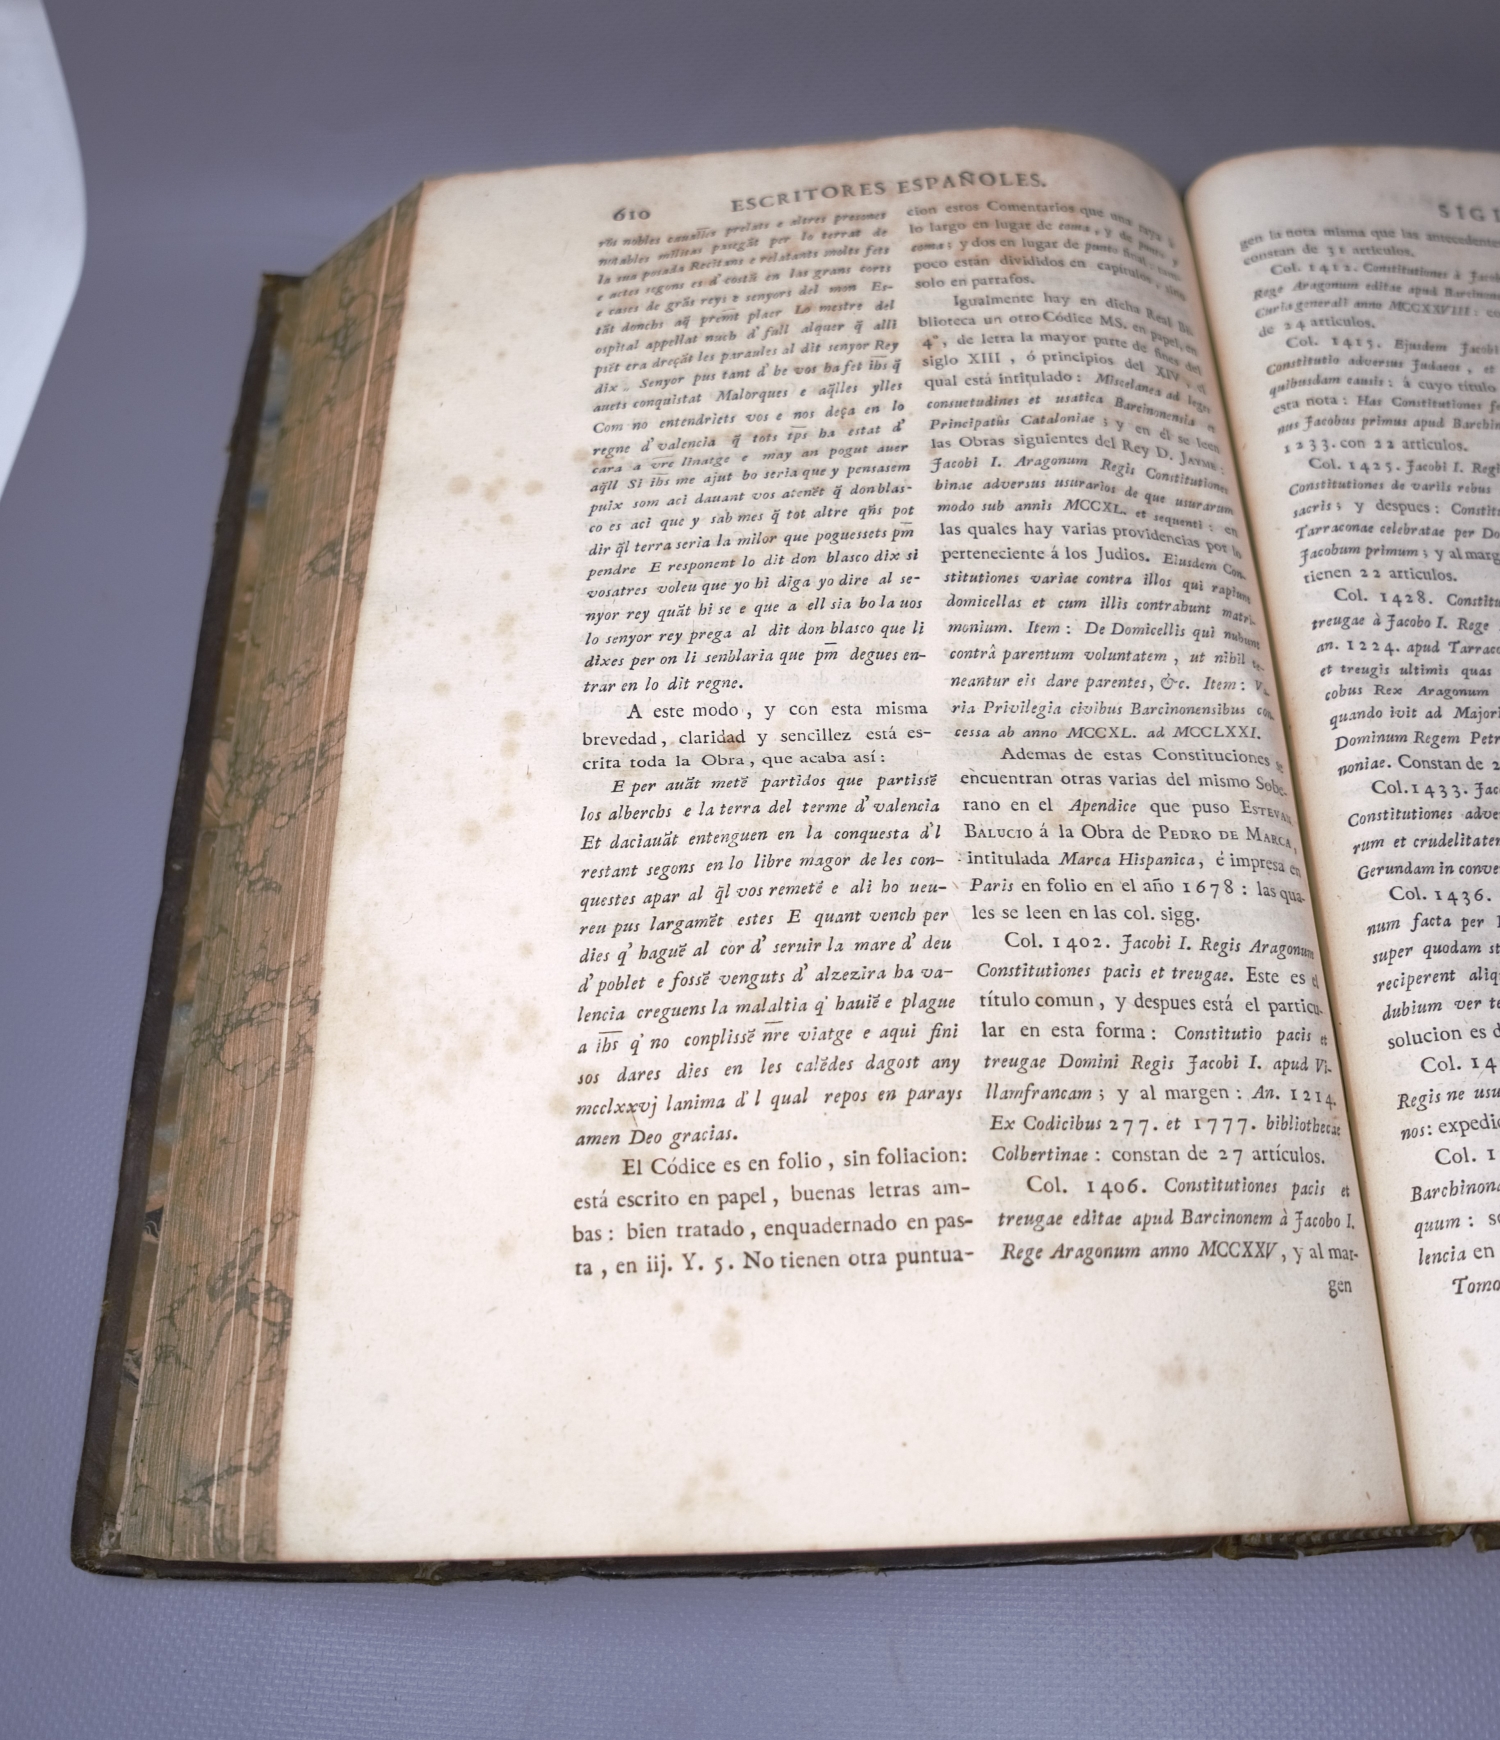 610 ESCRITORES ESPAÑOLES.
nobles prelats e altres presones
notables per lo terrat de
la sua posada Recitans e relatants molts fets
e actes segons es d' costũ en las grans corts
e cases de grãs reys e senyors del mon Es-
tãt donchs aq̃ premt plaer Lo mestre del
ospital appellat nuch d' fall alquer q̃ alli
psẽt era dreçãt les paraules al dit senyor Rey
dix . Senyor pus tant d' be vos ha fet ihs q̃
anets conquistat Malorques e aq̃lles ylles
Com no entendriets vos e nos deça en lo
regne d' valencia q̃ tots tps ha estat d'
cara a vre linatge e may an pogut auer
aq̃ll Si ihs me ajut bo seria que y pensasem
puix som aci dauant vos atenẽt q̃ don blas-
co es aci que y sab mes q̃ tot altre qñs pot
dir q̃l terra seria la milor que poguessets pm
pendre E responent lo dit don blasco dix si
vosatres voleu que yo hi diga yo dire al se-
nyor rey quãt hi se e que a ell sia bo la uos
lo senyor rey prega al dit don blasco que li
dixes per on li senblaria que pm degues en-
trar en lo dit regne.
A este modo , y con esta misma
brevedad, claridad y sencillez está es-
crita toda la Obra, que acaba así:
E per auãt metẽ partidos que partissẽ
los alberchs e la terra del terme d' valencia
Et daciauãt entenguen en la conquesta d' l
restant segons en lo libre magor de les con-
questes apar al q̃l vos remetẽ e ali ho ueu-
reu pus largamẽt estes E quant vench per
dies q' haguẽ al cor d' seruir la mare d' deu
d' poblet e fossẽ venguts d' alzezira ha va-
lencia creguens la malaltia q' hauiẽ e plague
a ihs q' no conplissẽ nre viatge e aqui fini
sos dares dies en les calẽdes dagost any
mcclxxvj lanima d' l qual repos en parays
amen Deo gracias.
El Códice es en folio , sin foliacion:
está escrito en papel , buenas letras am-
bas: bien tratado , enquadernado en pas-
ta , en iij. Y. 5. No tienen otra puntua-
cion estos Comentarios que una raya á
lo largo en lugar de coma, y de punto y
coma; y dos en lugar de punto final:
poco están divididos en capítulos, sino
solo en parrafos.
Igualmente hay en dicha Real Bi-
blioteca un otro Códice MS. en papel, en
4°, de letra la mayor parte de fines del
siglo XIII , ó principios del XIV, el
qual está intitulado: Miscelanea ad leges
consuetudines et usatica Barcinonensia et
Principatûs Cataloniae ; y en él se leen
las Obras siguientes del Rey D. JAYME:
Jacobi I. Aragonum Regis Constitutiones
binae adversus usurarios de que usurarum
modo sub annis MCCXL. et sequenti: en
las quales hay varias providencias por lo
perteneciente á los Judios. Eiusdem Con-
stitutiones variae contra illos qui rapiunt
domicellas et cum illis contrahunt matri-
monium. Item: De Domicellis qui nubunt
contrâ parentum voluntatem , ut nihil te-
neantur eis dare parentes, &c. Item: Va-
ria Privilegia civibus Barcinonensibus con-
cessa ab anno MCCXL. ad MCCLXXI.
Ademas de estas Constituciones se
encuentran otras varias del mismo Sobe-
rano en el Apendice que puso ESTEVAN
BALUCIO á la Obra de PEDRO DE MARCA,
intitulada Marca Hispanica, é impresa en
Paris en folio en el año 1678: las qua-
les se leen en las col. sigg.
Col. 1402. Jacobi I. Regis Aragonum
Constitutiones pacis et treugae. Este es el
título comun , y despues está el particu-
lar en esta forma: Constitutio pacis et
treugae Domini Regis Jacobi I. apud Vi-
llamfrancam ; y al margen: An. 1214.
Ex Codicibus 277. et 1777. bibliothecae
Colbertinae: constan de 27 artículos.
Col. 1406. Constitutiones pacis et
treugae editae apud Barcinonem à Jacobo I.
Rege Aragonum anno MCCXXV, y al mar-
gen
SIGL
gen la nota misma que las antecedentes
constan de 31 articulos.
Col. 1412. Constitutiones à Jacob
Rege Aragonum editae apud Barcinone
Curia generali anno MCCXXVIII: co
de 24 articulos.
Col. 1415. Ejusdem Jacobi
Constitutio adversus Judaeos , et
quibusdam causis: á cuyo título
esta nota: Has Constitutiones fe
nus Jacobus primus apud Barchin
1233. con 22 articulos.
Col. 1425. Jacobi I. Regi
Constitutiones de variis rebus
sacris; y despues: Constitu
Tarraconae celebratae per Do
Jacobum primum; y al marg
tienen 22 articulos.
Col. 1428. Constitu
treugae à Jacobo I. Rege
an. 1224. apud Tarraco
et treugis ultimis quas
cobus Rex Aragonum
quando ivit ad Majori
Dominum Regem Petr
noniae. Constan de 2
Col. 1433. Jac
Constitutiones adve
rum et crudelitatem
Gerundam in conve
Col. 1436.
num facta per
super quodam st
reciperent aliq
dubium ver te
solucion es d
Col. 14
Regis ne usu
nos: expedic
Col. 1
Barchinona
quum: so
lencia en
Tomo